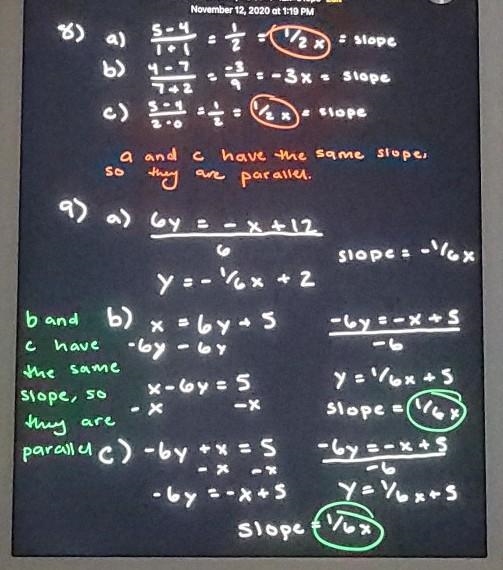 November 12, 2020 at 1:19 PM
8) a) 5-4/1+1 = 1/2 = 1/2 x = slope
b) 4-7/7+2 = -3/9 = -3x = slope
c) 5-4/2-0 = 1/2 = 1/2 x = slope
a and c have the same slope,
so they are parallel.
9) a) 6y = -x+12
6
slope = -1/6x
y = -1/6x + 2
b and c have the same slope, so they are parallel
b) x = 6y + 5
-6y -6y
x-6y = 5
-x -x
-6y = -x + 5
-6
y = 1/6x + 5
slope = 1/6x
c) -6y + x = 5
-x -x
-6y = -x+5
-6y = -x+5
-6
y = 1/6x+5
slope = 1/6x